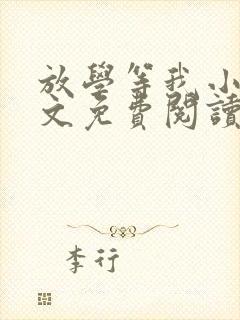 放學等我小
文免費閱讀
李行